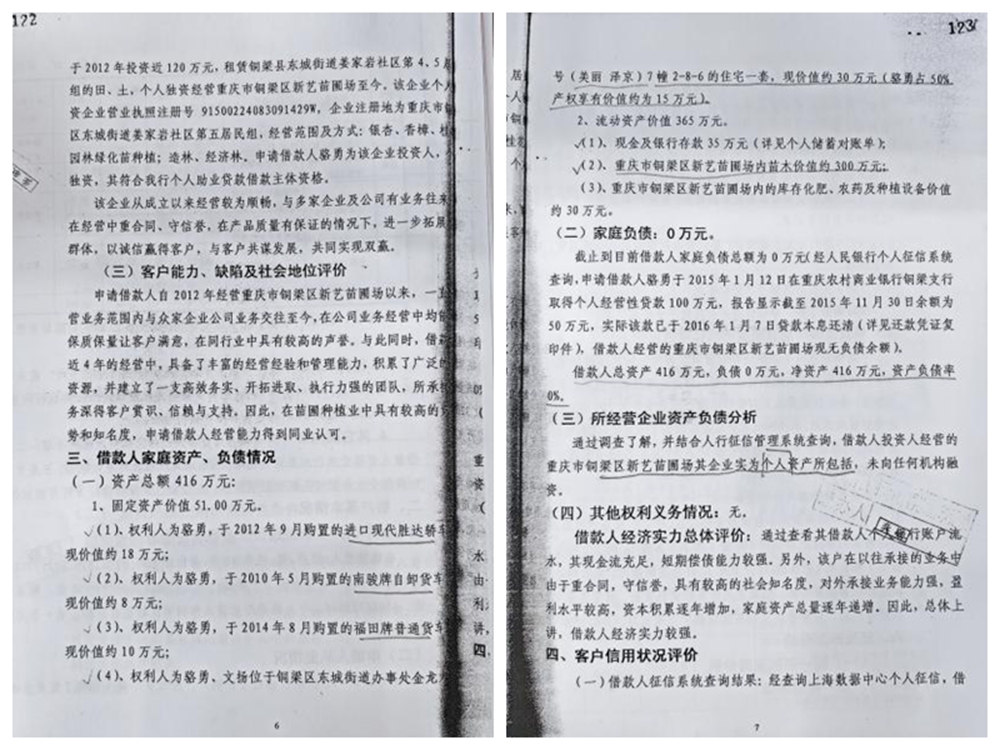 122
于2012年投资近120万元，租赁铜梁县东城街道姜家岩社区第4、5
组的田、土，个人独资经营重庆市铜梁区新艺苗圃场至今。该企业个人
资企业营业执照注册号 91500224083091429W，企业注册地为重庆市
区东城街道姜家岩社区第五居民组，经营范围及方式：银杏、香樟、桂
园林绿化苗种植；造林、经济林。申请借款人骆勇为该企业投资人，
独资，其符合我行个人助业贷款借款主体资格。
该企业从成立以来经营较为顺畅，与多家企业及公司有业务往来
在经营中重合同、守信誉，在产品质量有保证的情况下，进一步拓展
群体，以诚信赢得客户，与客户共谋发展，共同实现双赢。
（三）客户能力、缺陷及社会地位评价
申请借款人自2012年经营重庆市铜梁区新艺苗圃场以来，一直
营业务范围内与众家企业公司业务交往至今，在公司业务经营中均能
保质保量让客户满意，在同行业中具有较高的声誉。与此同时，借款
近4年的经营中，具备了丰富的经营经验和管理能力，积累了广泛的
资源，并建立了一支高效务实、开拓进取、执行力强的团队，所承
务深得客户赏识、信赖与支持。因此，在苗圃种植业中具有较高的
势和知名度，申请借款人经营能力得到同业认可。
三、借款人家庭资产、负债情况
（一）资产总额416万元：
1、固定资产价值51.00万元。
（1）、权利人为骆勇，于2012年9月购置的进口现代胜达轿车
现价值约18万元；
（2）、权利人为骆勇，于2010年5月购置的南骏牌自卸货车
现价值约8万元；
（3）、权利人为骆勇，于2014年8月购置的福田牌普通货车
现价值约10万元；
（4）、权利人为骆勇、文扬位于铜梁区东城街道办事处金龙
6
123
号（美丽 泽京）7幢2-8-6的住宅一套，现价值约30万元（骆勇占50%
产权享有价值约为15万元）。
2、流动资产价值365万元。
（1）、现金及银行存款35万元（详见个人储蓄对账单）；
（2）、重庆市铜梁区新艺苗圃场内苗木价值约300万元；
（3）、重庆市铜梁区新艺苗圃场内的库存化肥、农药及种植设备价值
约30万元。
（二）家庭负债：0万元。
截止到目前借款人家庭负债总额为0万元（经人民银行个人征信系统
查询，申请借款人骆勇于2015年1月12日在重庆农村商业银行铜梁支行
取得个人经营性贷款100万元，报告显示截至2015年11月30日余额为
50万元，实际该款已于2016年1月7日贷款本息还清（详见还款凭证复
印件），借款人经营的重庆市铜梁区新艺苗圃场现无负债余额）。
借款人总资产416万元，负债0万元，净资产416万元，资产负债率
0%。
（三）所经营企业资产负债分析
通过调查了解，并结合人行征信管理系统查询，借款人投资人经营的
重庆市铜梁区新艺苗圃场其企业实为个人资产所包括，未向任何机构融
资。
（四）其他权利义务情况：无。
借款人经济实力总体评价：通过查看其借款人个人银行账户流
水，其现金流充足，短期偿债能力较强。另外，该户在以往承接的业务中
由于重合同，守信誉，具有较高的社会知名度，对外承接业务能力强，盈
利水平较高，资本积累逐年增加，家庭资产总量逐年递增。因此，总体上
讲，借款人经济实力较强。
四、客户信用状况评价
（一）借款人征信系统查询结果：经查询上海数据中心个人征信，借
7